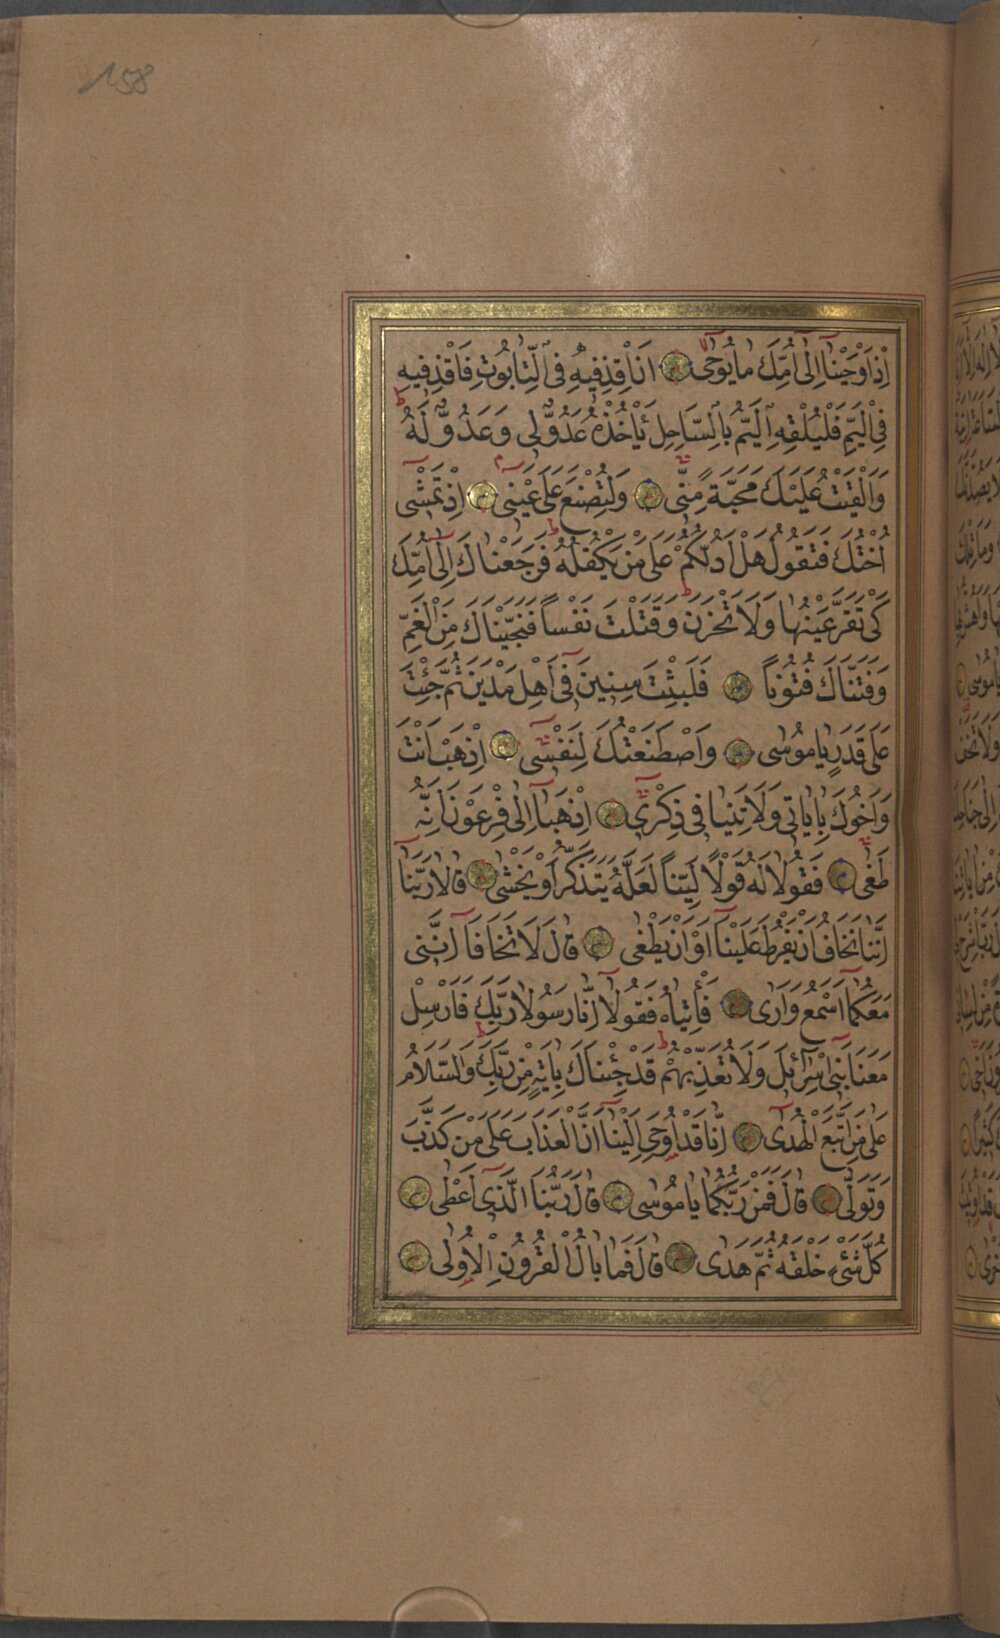 158
اِذْ اَوْحَيْنَٓا اِلٰٓى اُمِّكَ مَا يُوحٰىۙ اَنِ اقْذِفِيهِ فِي التَّابُوتِ فَاقْذِفِيهِ
فِي الْيَمِّ فَلْيُلْقِهِ الْيَمُّ بِالسَّاحِلِ يَأْخُذْهُ عَدُوٌّ لِي وَعَدُوٌّ لَهُ ط
وَاَلْقَيْتُ عَلَيْكَ مَحَبَّةً مِنِّي وَلِتُصْنَعَ عَلٰى عَيْنِي اِذْ تَمْشِٓي
اُخْتُكَ فَتَقُولُ هَلْ اَدُلُّكُمْ عَلٰى مَنْ يَكْفُلُهُ ط فَرَجَعْنَاكَ اِلٰٓى اُمِّكَ
كَيْ تَقَرَّ عَيْنُهَا وَلَا تَحْزَنَ ط وَقَتَلْتَ نَفْساً فَنَجَّيْنَاكَ مِنَ الْغَمِّ
وَفَتَنَّاكَ فُتُوناً فَلَبِثْتَ سِنِينَ فِٓي اَهْلِ مَدْيَنَ ثُمَّ جِئْتَ
عَلٰى قَدَرٍ يَا مُوسٰى وَاصْطَنَعْتُكَ لِنَفْسِي اِذْهَبْ اَنْتَ
وَاَخُوكَ بِاٰيَاتِي وَلَا تَنِيَا فِي ذِكْرِي اِذْهَبَٓا اِلٰى فِرْعَوْنَ اِنَّهُ
طَغٰى فَقُولَا لَهُ قَوْلًا لَيِّناً لَعَلَّهُ يَتَذَكَّرُ اَوْ يَخْشٰى قَالَا رَبَّنَٓا
اِنَّنَا نَخَافُ اَنْ يَفْرُطَ عَلَيْنَٓا اَوْ اَنْ يَطْغٰى قَالَ لَا تَخَافَٓا اِنَّنِي
مَعَكُمَٓا اَسْمَعُ وَاَرٰى فَأْتِيَاهُ فَقُولَٓا اِنَّا رَسُولَا رَبِّكَ فَاَرْسِلْ
مَعَنَا بَنِٓي اِسْرَٓائِلَ وَلَا تُعَذِّبْهُمْ ط قَدْ جِئْنَاكَ بِاٰيَةٍ مِنْ رَبِّكَ ط وَالسَّلَامُ
عَلٰى مَنِ اتَّبَعَ الْهُدٰى اِنَّا قَدْ اُوحِيَ اِلَيْنَٓا اَنَّ الْعَذَابَ عَلٰى مَنْ كَذَّبَ
وَتَوَلّٰى قَالَ فَمَنْ رَبُّكُمَا يَا مُوسٰى قَالَ رَبُّنَا الَّذِٓي اَعْطٰى
كُلَّ شَيْءٍ خَلْقَهُ ثُمَّ هَدٰى قَالَ فَمَا بَالُ الْقُرُونِ الْاُولٰى